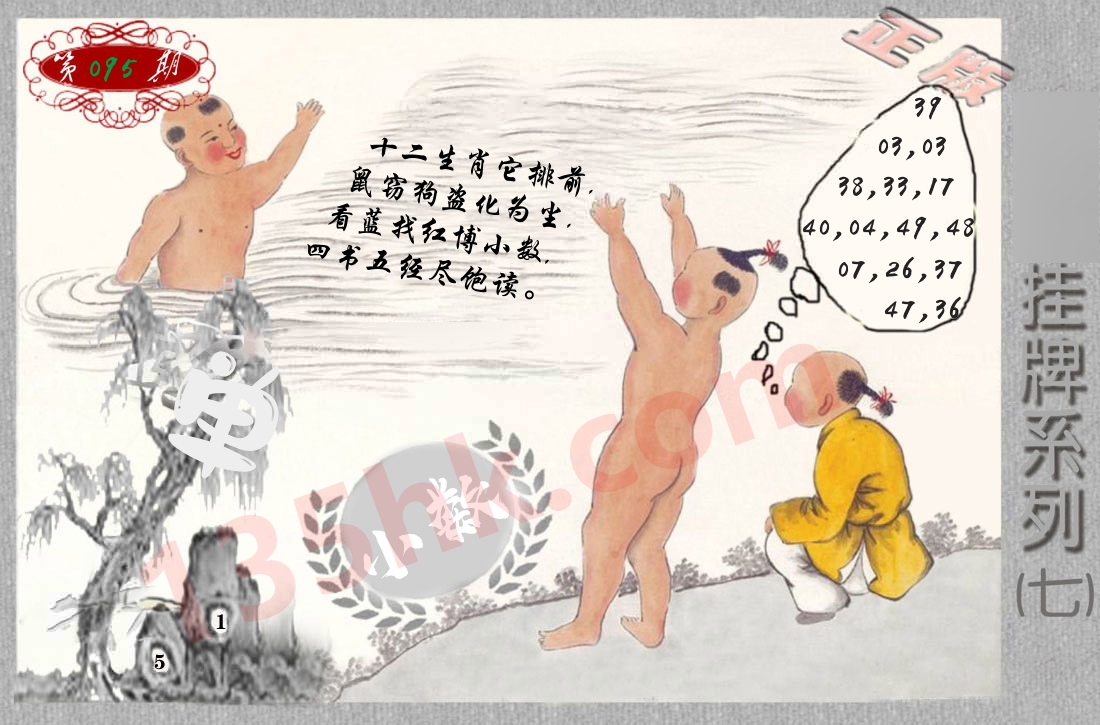 第 095 期
正版
十二生肖它排前,
鼠窃狗盗化为尘,
看蓝找红博小数,
四书五经尽饱读。
39
03,03
38,33,17
40,04,49,48
07,26,37
47,36
挂牌系列(七)
单
小数
135hk.com
1
5